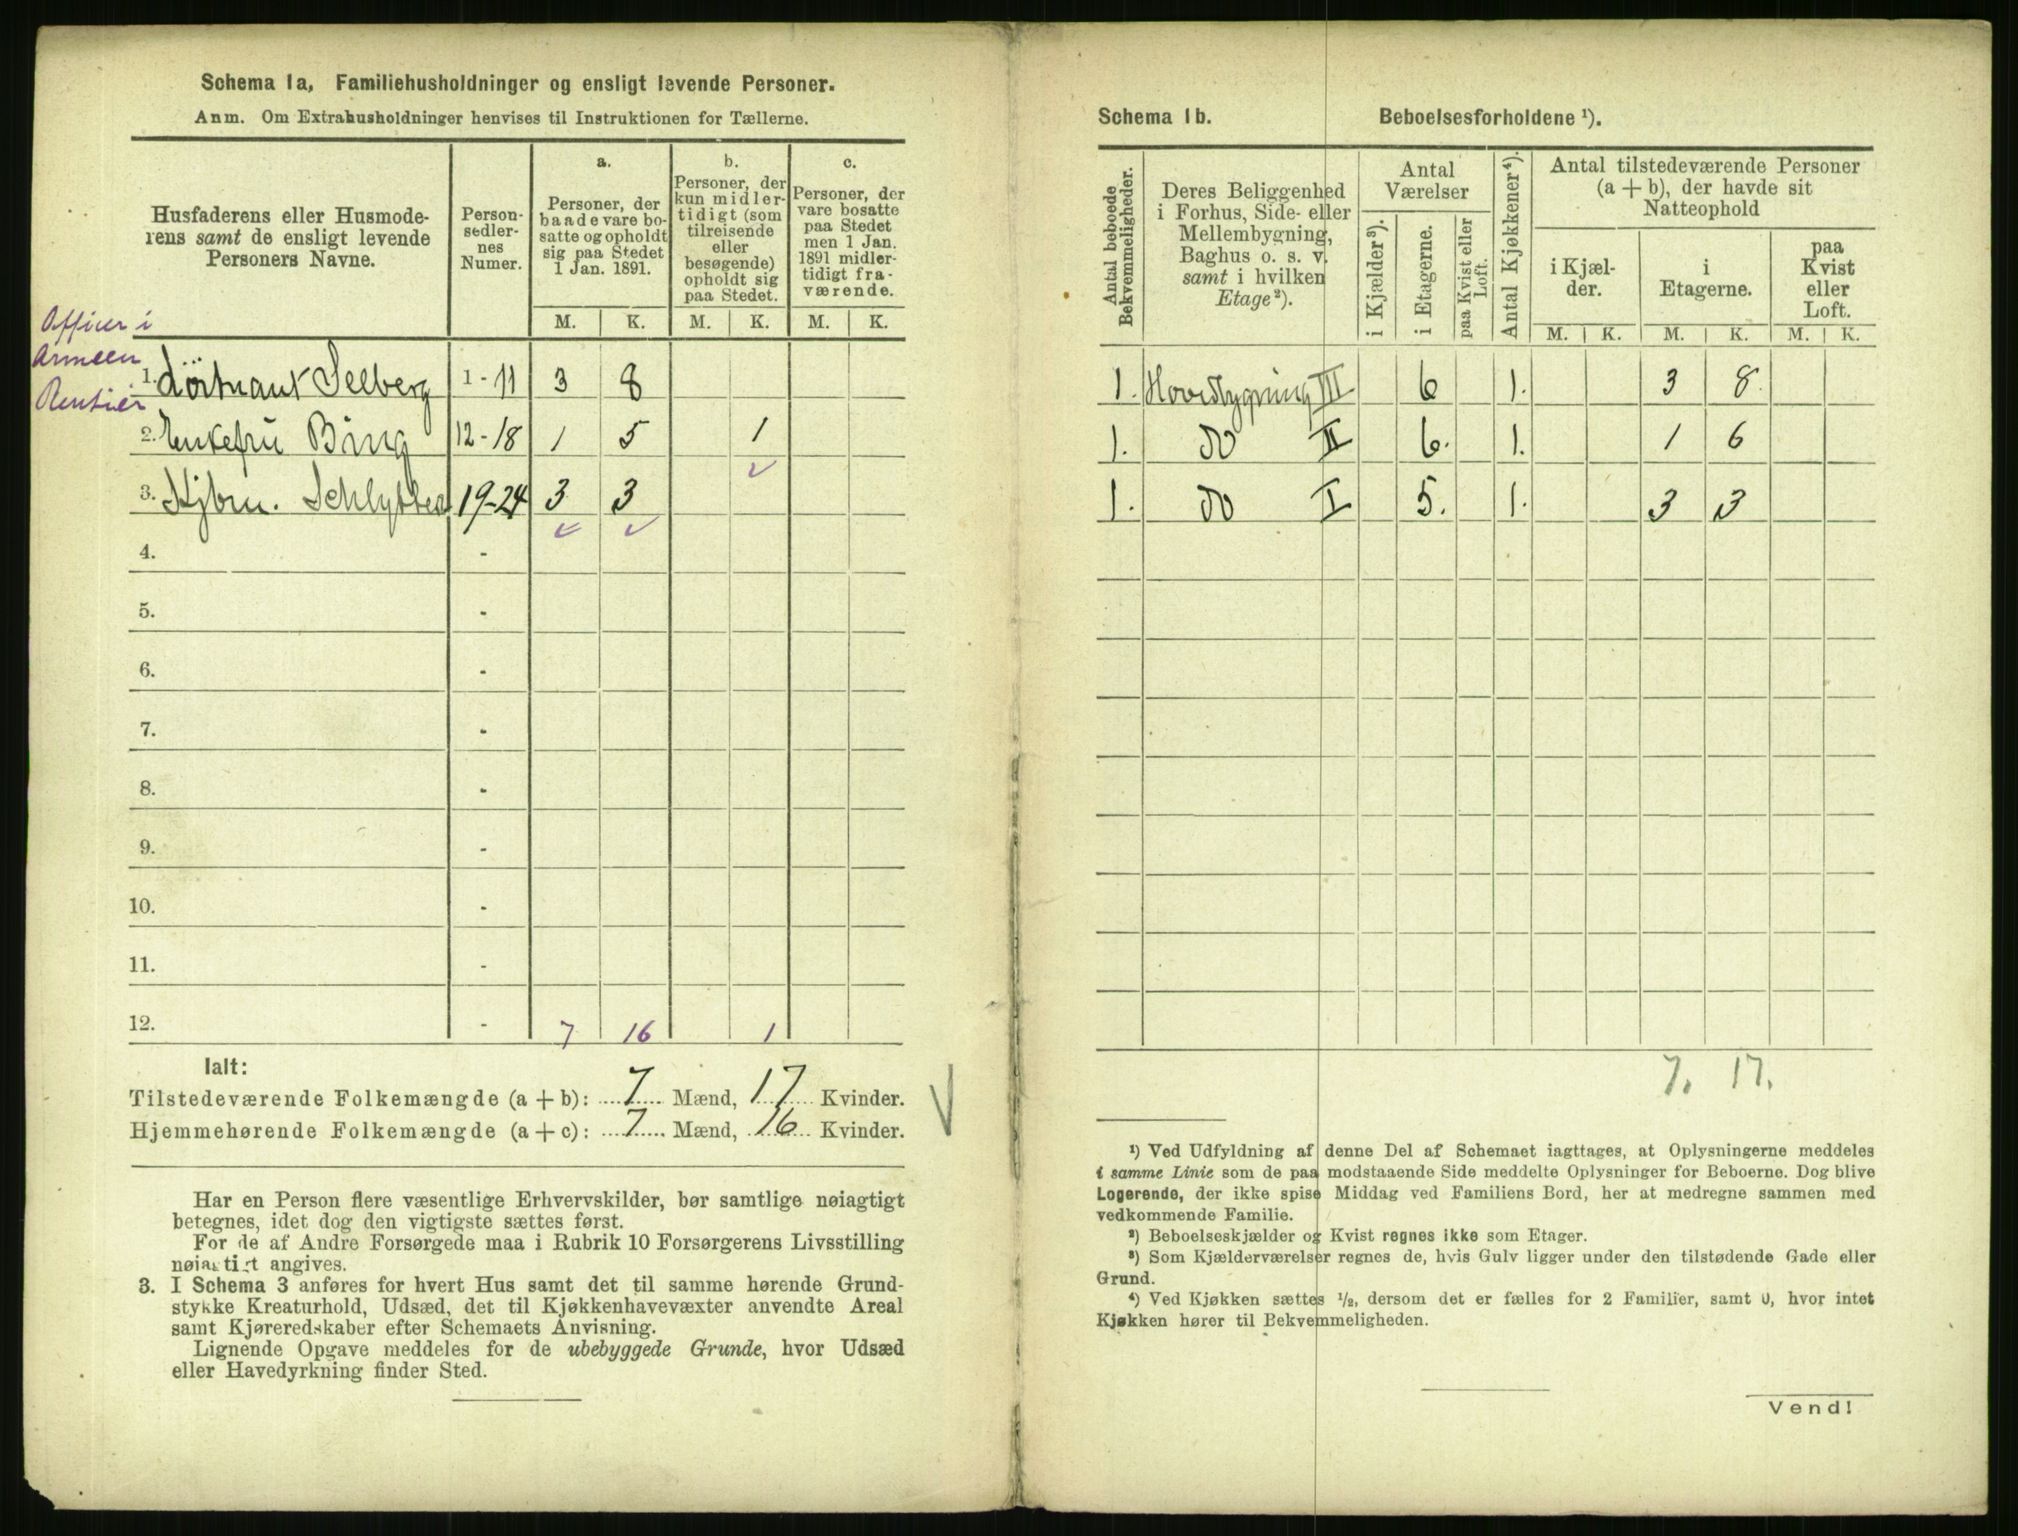 Schema 1a, Familiehusholdninger og ensligt levende Personer.
Anm. Om Extrahusholdninger henvises til Instruktionen for Tællerne.
Husfaderens eller Husmode-
rens samt de ensligt levende
Personers Navne.
Person-
sedler-
nes
Numer.
a.
Personer, der
baade vare bo-
satte og opholdt
sig paa Stedet
1 Jan. 1891.
b.
Personer, der
kun midler-
tidigt (som
tilreisende
eller
besøgende)
opholdt sig
paa Stedet.
c.
Personer, der
vare bosatte
paa Stedet
men 1 Jan.
1891 midler-
tidigt fra-
værende.
M. K. M. K. M. K.
Officer i
Armeen
Rentier
1. Löitnant Selberg 1 - 11 3 8
2. Enkefru Bing 12 - 18 1 5 1
3. Kjbm. Schlytter 19 - 24 3 3
4. -
5. -
6. -
7. -
8. -
9. -
10. -
11. -
12. - 7 16 1
Ialt:
Tilstedeværende Folkemængde (a + b): 7 Mænd, 17 Kvinder.
Hjemmehørende Folkemængde (a + c): 7 Mænd, 16 Kvinder.
Har en Person flere væsentlige Erhvervskilder, bør samtlige nøiagtigt
betegnes, idet dog den vigtigste sættes først.
For de af Andre Forsørgede maa i Rubrik 10 Forsørgerens Livsstilling
nøiagtigt angives.
3. I Schema 3 anføres for hvert Hus samt det til samme hørende Grund-
stykke Kreaturhold, Udsæd, det til Kjøkkenhavevæxter anvendte Areal
samt Kjøreredskaber efter Schemaets Anvisning.
Lignende Opgave meddeles for de ubebyggede Grunde, hvor Udsæd
eller Havedyrkning finder Sted.
Schema 1b. Beboelsesforholdene ¹).
Antal beboede
Bekvemmeligheder.
Deres Beliggenhed
i Forhus, Side- eller
Mellembygning,
Baghus o. s. v.
samt i hvilken
Etage ²).
Antal
Værelser
i Kjælder ³).
i Etagerne.
paa Kvist eller
Loft.
Antal Kjøkkener ⁴).
Antal tilstedeværende Personer
(a + b), der havde sit
Natteophold
i Kjæl-
der.
i
Etagerne.
paa
Kvist
eller
Loft.
M. K. M. K. M. K.
1. Hovedbygning III 6 1. 3 8.
1. do II 6. 1. 1 6
1. do I 5. 1. 3 3
7. 17.
¹) Ved Udfyldning af denne Del af Schemaet iagttages, at Oplysningerne meddeles
i samme Linie som de paa modstaaende Side meddelte Oplysninger for Beboerne. Dog blive
Logerende, der ikke spise Middag ved Familiens Bord, her at medregne sammen med
vedkommende Familie.
²) Beboelseskjælder og Kvist regnes ikke som Etager.
³) Som Kjælderværelser regnes de, hvis Gulv ligger under den tilstødende Gade eller
Grund.
⁴) Ved Kjøkken sættes ½, dersom det er fælles for 2 Familier, samt 0, hvor intet
Kjøkken hører til Bekvemmeligheden.
Vend!